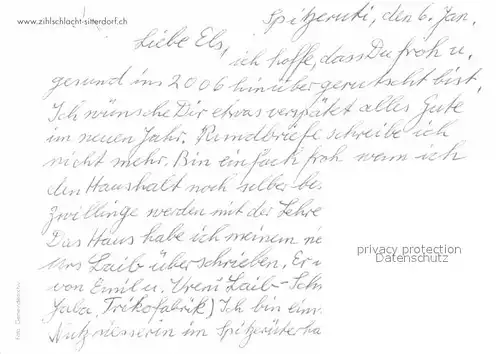 www.zihlschlacht-sitterdorf.ch
Spitzerüti, den 6. Jan.
Liebe Els,
ich hoffe, dass Du froh u.
gesund ins 2006 hinübergerutscht bist.
Ich wünsche Dir etwas verspätet alles Gute
im neuen Jahr. Rundbriefe schreibe ich
nicht mehr. Bin einfach froh wenn ich
den Haushalt noch selber be
Zwillinge werden mit der Lehre
Das Haus habe ich meinem ne
Urs Laib überschrieben. Er i
von Emil u. Vreni Laib-Schm
Yala, Trikofabrik) Ich bin
Nutzniesserin im Spitzerüterha
privacy protection
Datenschutz
Foto: Gemeindearchiv